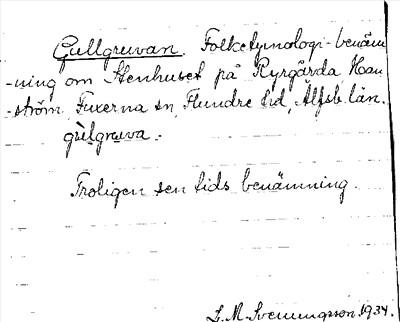 Gullgruvan. Folketymologi-benäm
-ning om Stenhuset på Ryrgärda Hau
-ström, Fuxerna sn, Flundre hd, Älfsb. län.
gu̇lgruva.
Troligen sen tids benämning.
L. M. Svenungsson 1934.